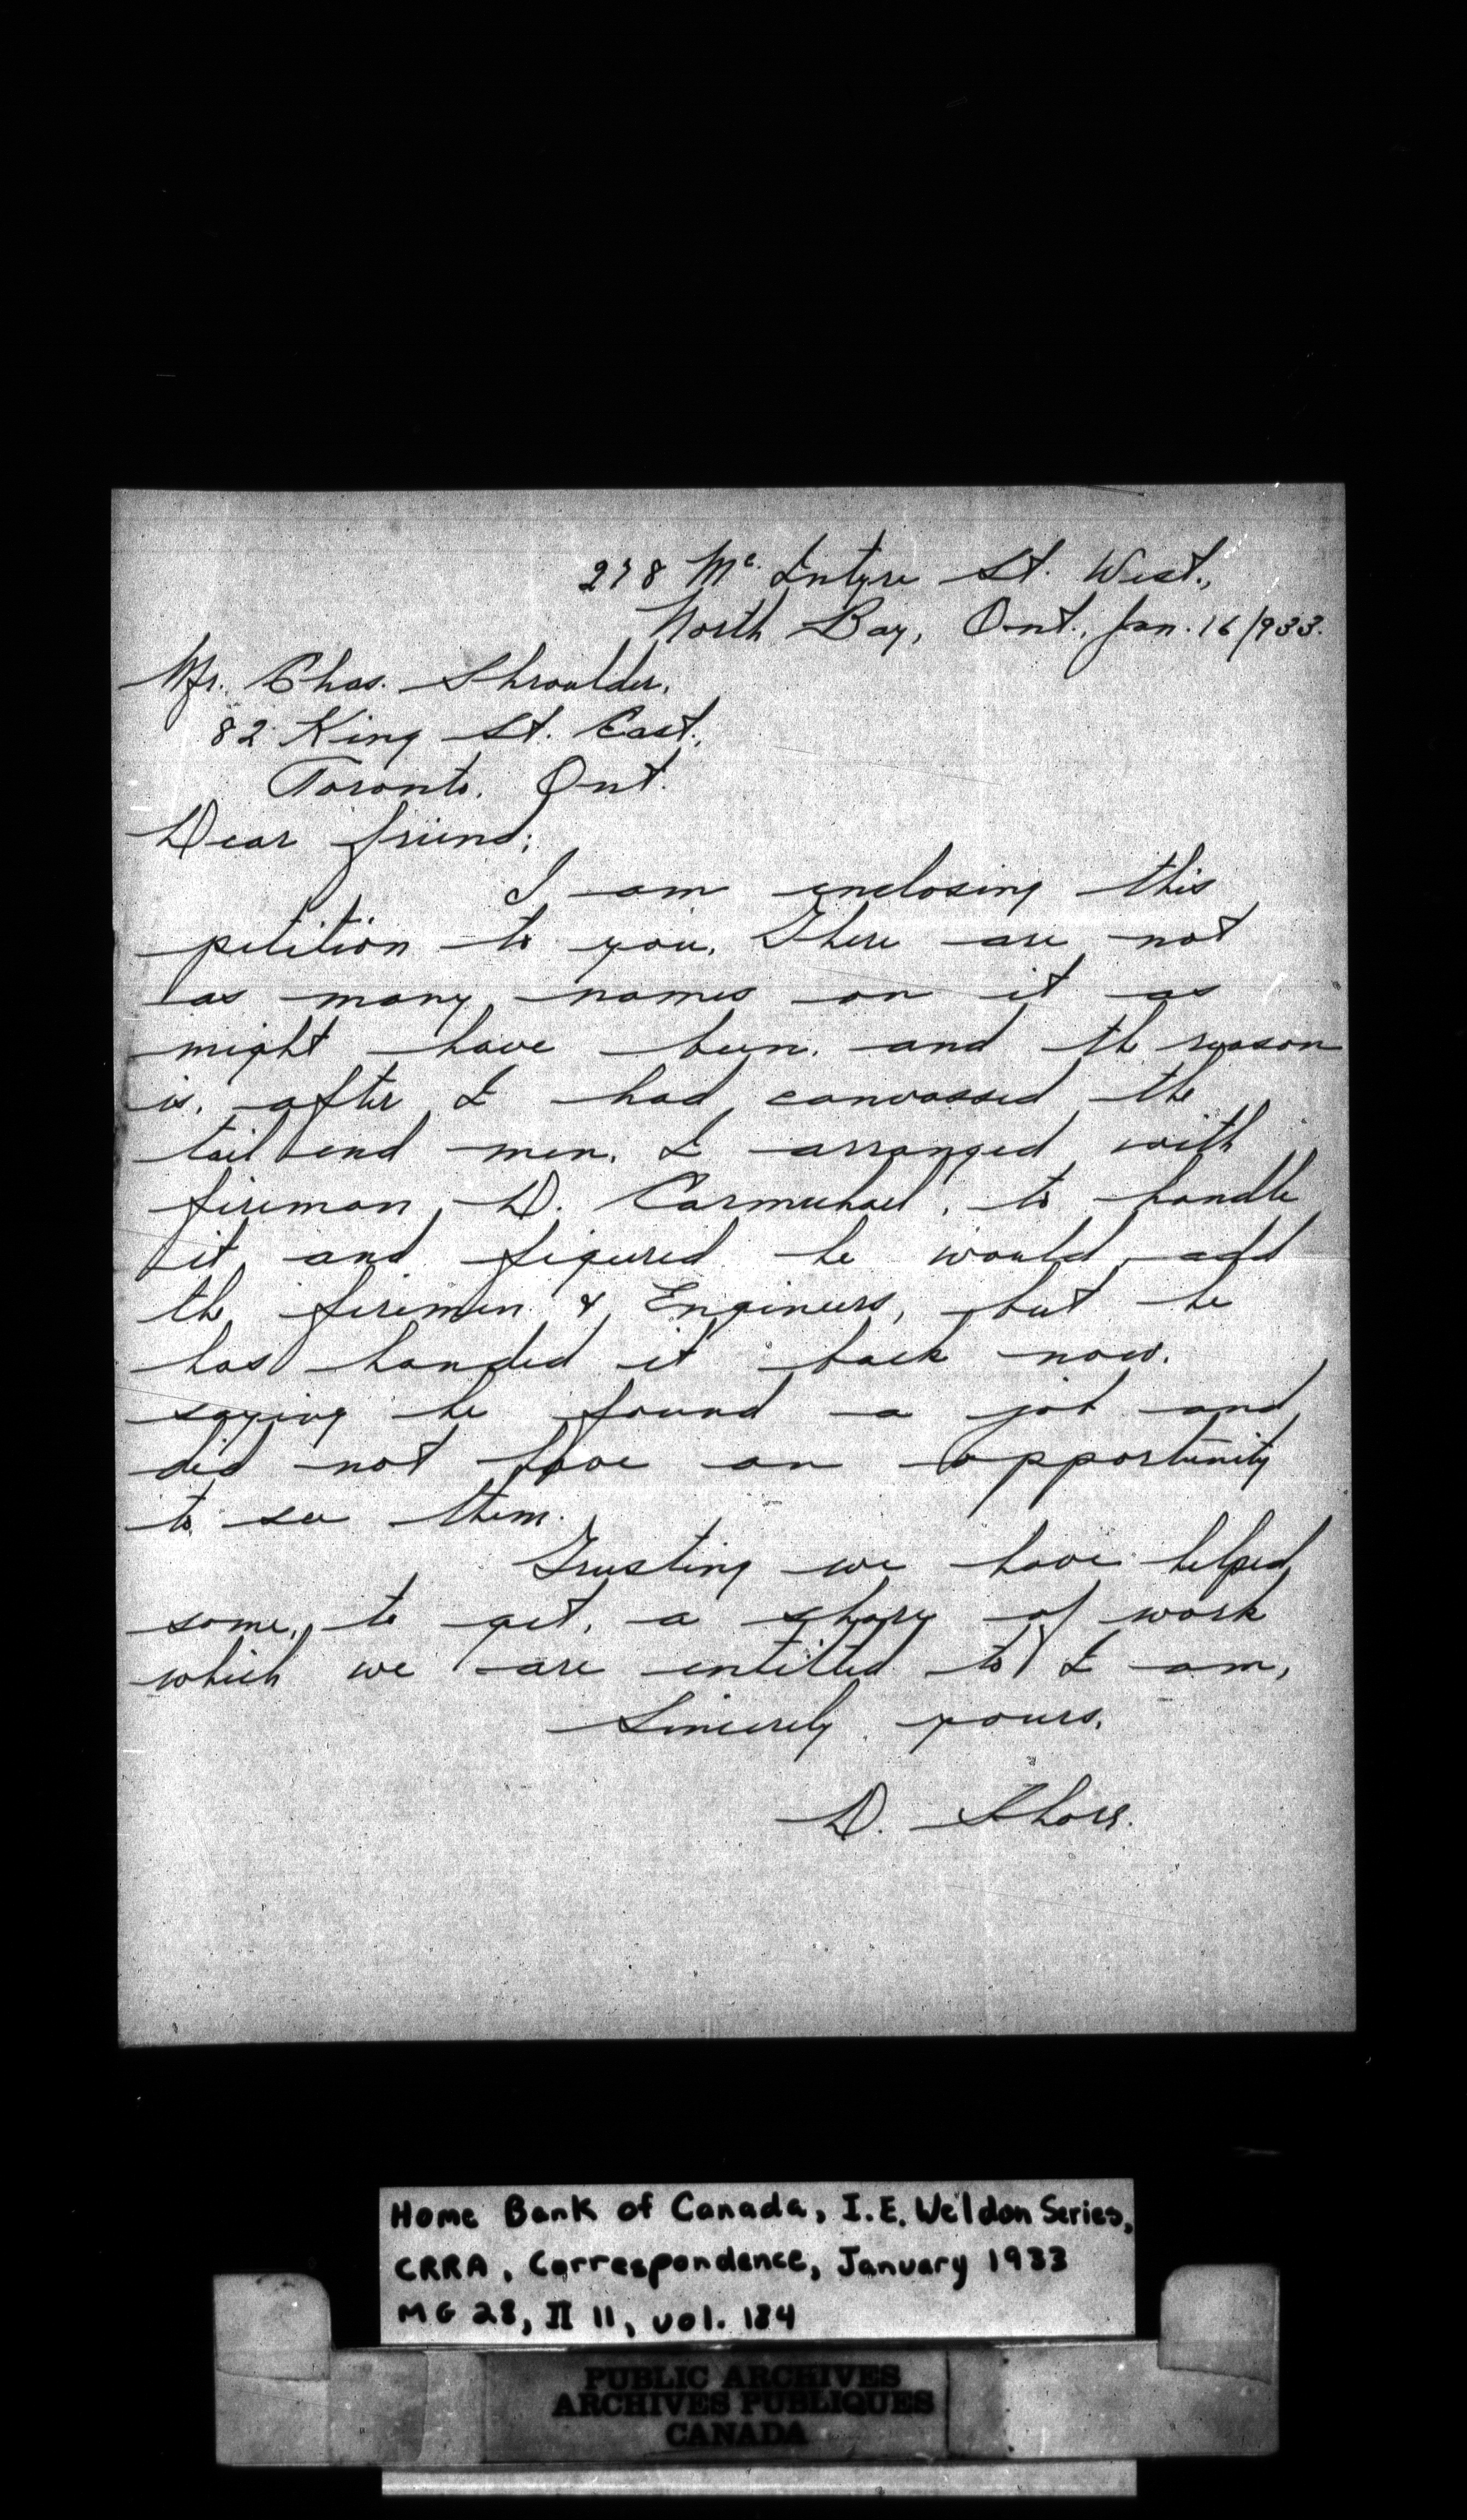 278 Mc. Intyre St. West.,
North Bay, Ont., Jan. 16/933.
Mr. Chas. Shroulder,
82 King St. East.,
Toronto. Ont.
Dear friend;
I am enclosing this
petition to you. There are not
as many names on it as
might have been. and the reason
is. after I had canvassed the
tail end men. I arranged with
fireman D. Carmichael. to handle
it and figured he would add
the firemen & Engineers, but he
has handed it back now.
saying he found a job and
did not have an opportunity
to see them.
Trusting we have helped
some, to get. a share of work
which we are entitled to I am,
Sincerely yours.
D.
Home Bank of Canada, I.E. Weldon Series,
CRRA, Correspondence, January 1933
MG 28, II 11, vol. 184
PUBLIC ARCHIVES
ARCHIVES PUBLIQUES
CANADA